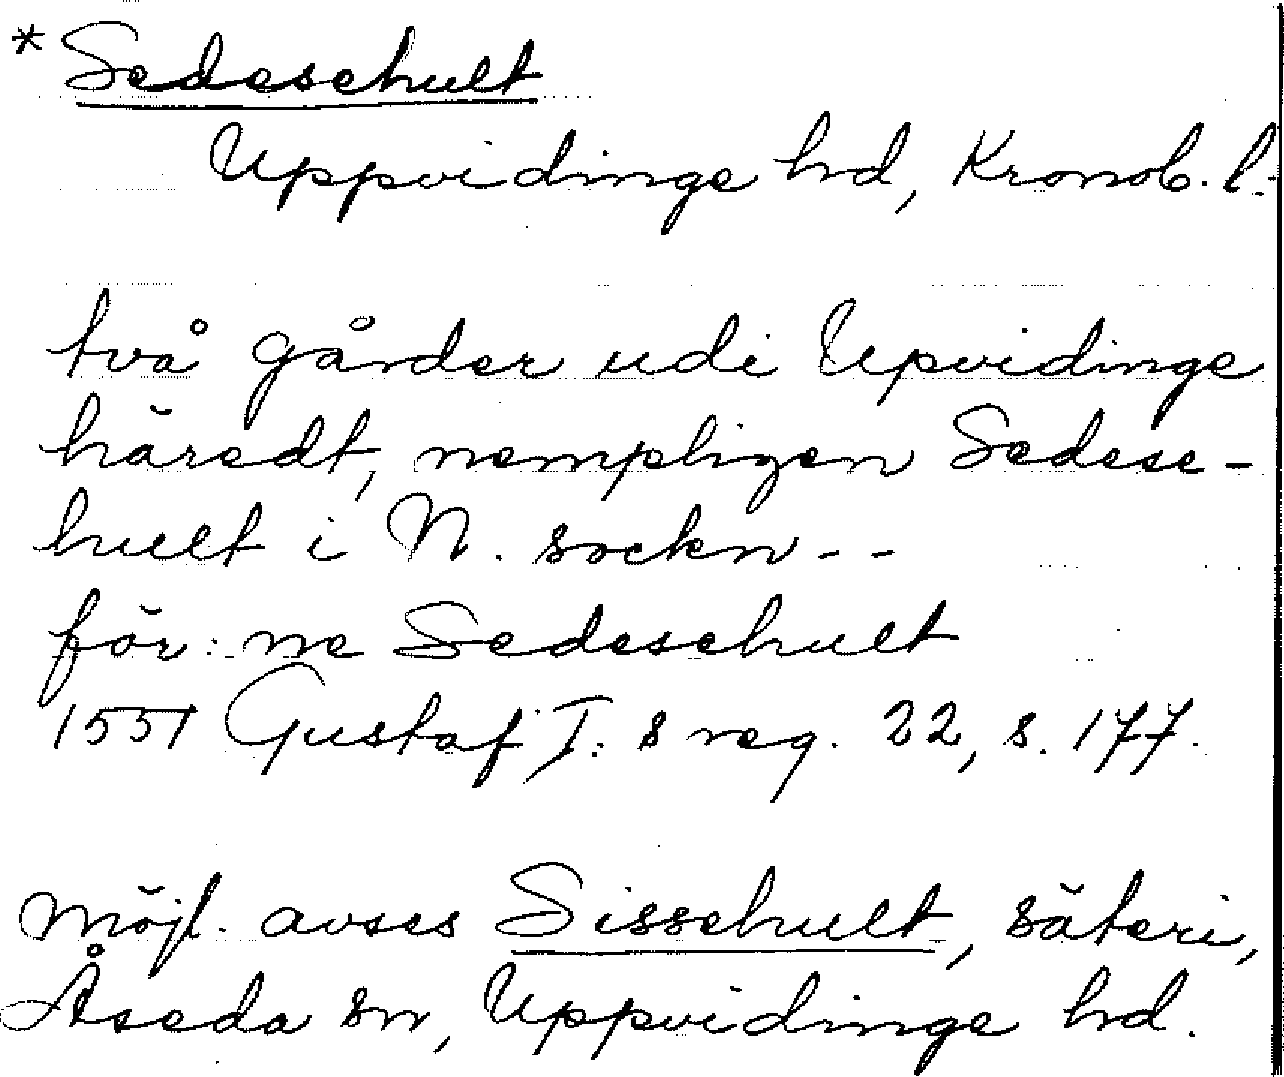 *Sedesehult
Uppvidinge hd, Kronob. l.
två gårder udi Upvidinge
häredt, nempligen Sedese-
hult i N. sockn - -
för: ne Sedesehult
1551 Gustaf I: s reg. 22, s. 177.
möjl. avses Sissehult, säteri,
Åseda sn, Uppvidinge hd.